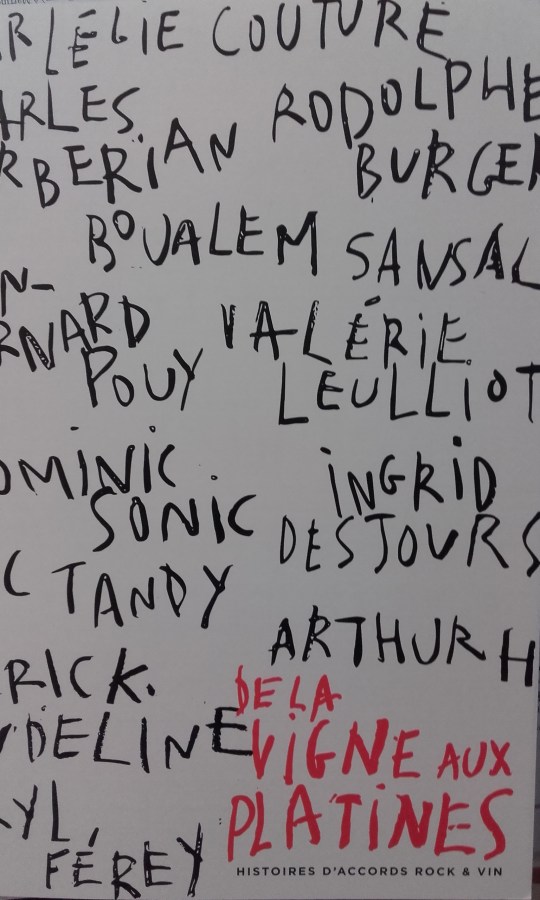 RLÉLIE COUTURE
ARLES
RBERIAN
RODOLPHE
BURGER
BOUALEM SANSAL
N-
RNARD
POUY
VALÉRIE
LEULLIOT
OMINIC
SONIC
INGRID
DESJOURS
C TANDY
ARTHUR H
RICK
UDELINE
YL
FÉREY
DE LA
VIGNE AUX
PLATINES
HISTOIRES D'ACCORDS ROCK & VIN